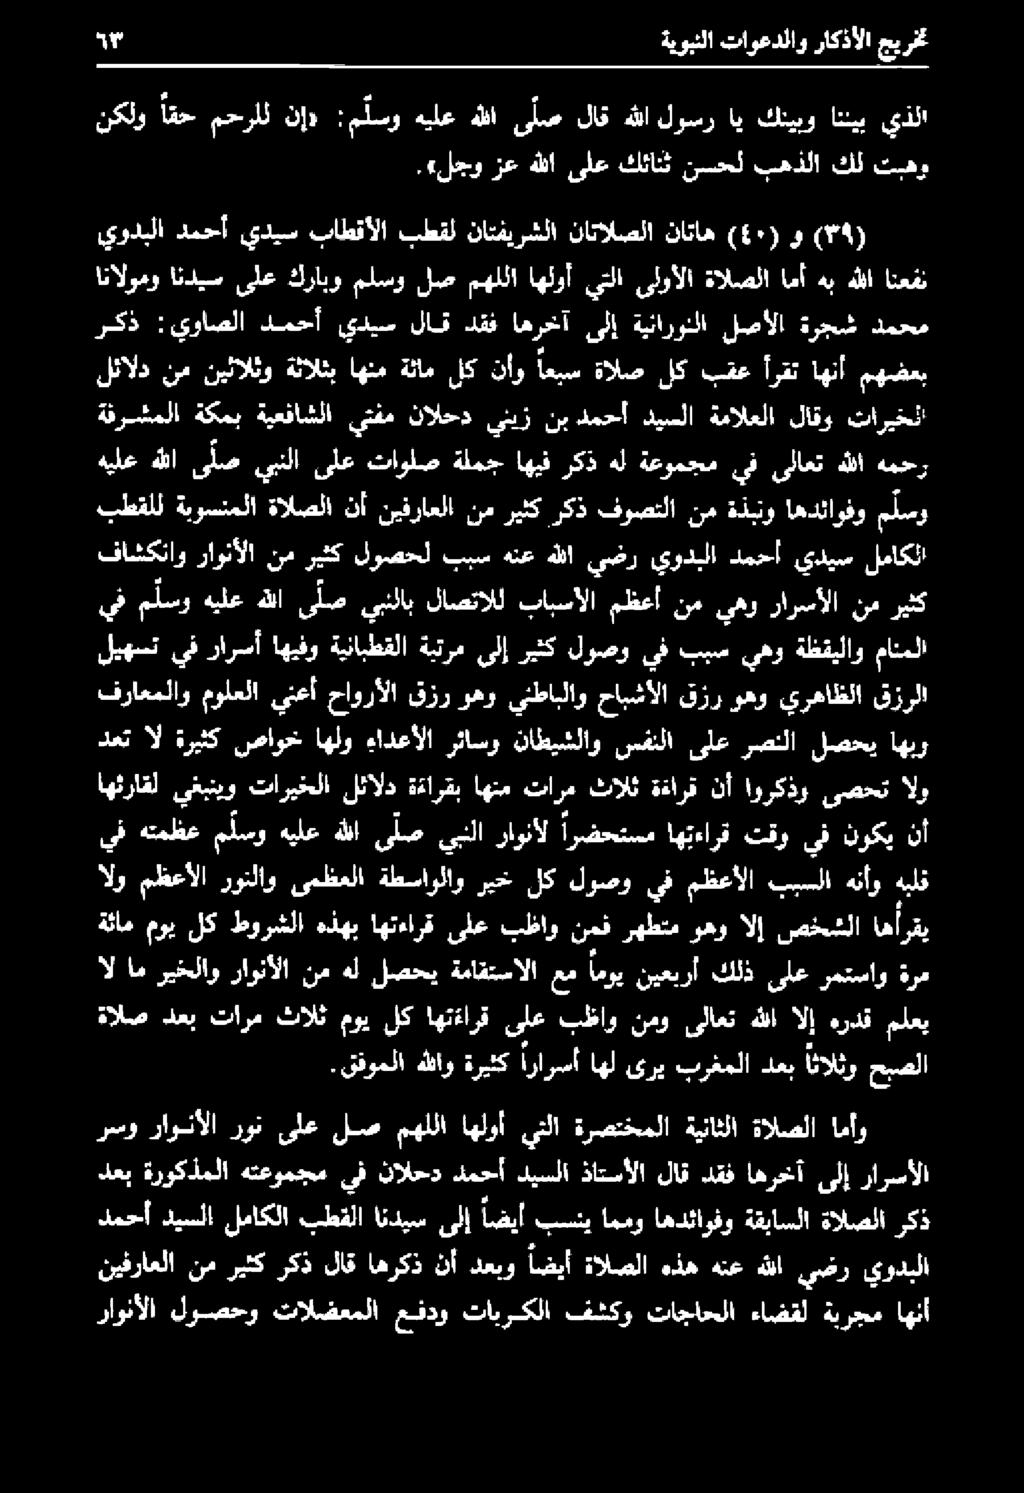 تخريج الأذكار والدعوات النبوية ٦٣
الذي بيننا وبينك يا رسول الله قال صلّى الله عليه وسلّم: «إن للرحم حقاً ولكن
وهبت لك الذهب لحسن ثنائك على الله عز وجل».
(٣٩) و (٤٠) هاتان الصلاتان الشريفتان لقطب الأقطاب سيدي أحمد البدوي
نفعنا الله به أما الصلاة الأولى التي أولها اللهم صل وسلم وبارك على سيدنا ومولانا
محمد شجرة الأصل النورانية إلى آخرها فقد قال سيدي أحمد الصاوي: ذكر
بعضهم أنها تقرأ عقب كل صلاة سبعاً وأن كل مائة منها بثلاثة وثلاثين من دلائل
الخيرات وقال العلامة السيد أحمد بن زيني دحلان مفتي الشافعية بمكة المشرفة
رحمه الله تعالى في مجموعة له ذكر فيها جملة صلوات على النبي صلّى الله عليه
وسلّم وفوائدها ونبذة من التصوف ذكر كثير من العارفين أن الصلاة المنسوبة للقطب
الكامل سيدي أحمد البدوي رضي الله عنه سبب لحصول كثير من الأنوار وانكشاف
كثير من الأسرار وهي من أعظم الأسباب للاتصال بالنبي صلّى الله عليه وسلّم في
المنام واليقظة وهي سبب في وصول كثير إلى مرتبة القطبانية وفيها أسرار في تسهيل
الرزق الظاهري وهو رزق الأشباح والباطني وهو رزق الأرواح أعني العلوم والمعارف
وبها يحصل النصر على النفس والشيطان وسائر الأعداء ولها خواص كثيرة لا تعد
ولا تحصى وذكروا أن قراءة ثلاث مرات منها بقراءة دلائل الخيرات وينبغي لقارئها
أن يكون في وقت قراءتها مستحضراً لأنوار النبي صلّى الله عليه وسلّم عظمته في
قلبه وأنه السبب الأعظم في وصول كل خير والواسطة العظمى والنور الأعظم ولا
يقرأها الشخص إلا وهو متطهر فمن واظب على قراءتها بهذه الشروط كل يوم مائة
مرة واستمر على ذلك أربعين يوماً مع الاستقامة يحصل له من الأنوار والخير ما لا
يعلم قدره إلا الله تعالى ومن واظب على قراءتها كل يوم ثلاث مرات بعد صلاة
الصبح وثلاثاً بعد المغرب يرى لها أسراراً كثيرة والله الموفق.
وأما الصلاة الثانية المختصرة التي أولها اللهم صل على نور الأنوار وسر
الأسرار إلى آخرها فقد قال الأستاذ السيد أحمد دحلان في مجموعته المذكورة بعد
ذكر الصلاة السابقة وفوائدها ومما ينسب أيضاً إلى سيدنا القطب الكامل السيد أحمد
البدوي رضي الله عنه هذه الصلاة أيضاً وبعد أن ذكرها قال ذكر كثير من العارفين
أنها مجربة لقضاء الحاجات وكشف الكربات ودفع المعضلات وحصول الأنوار